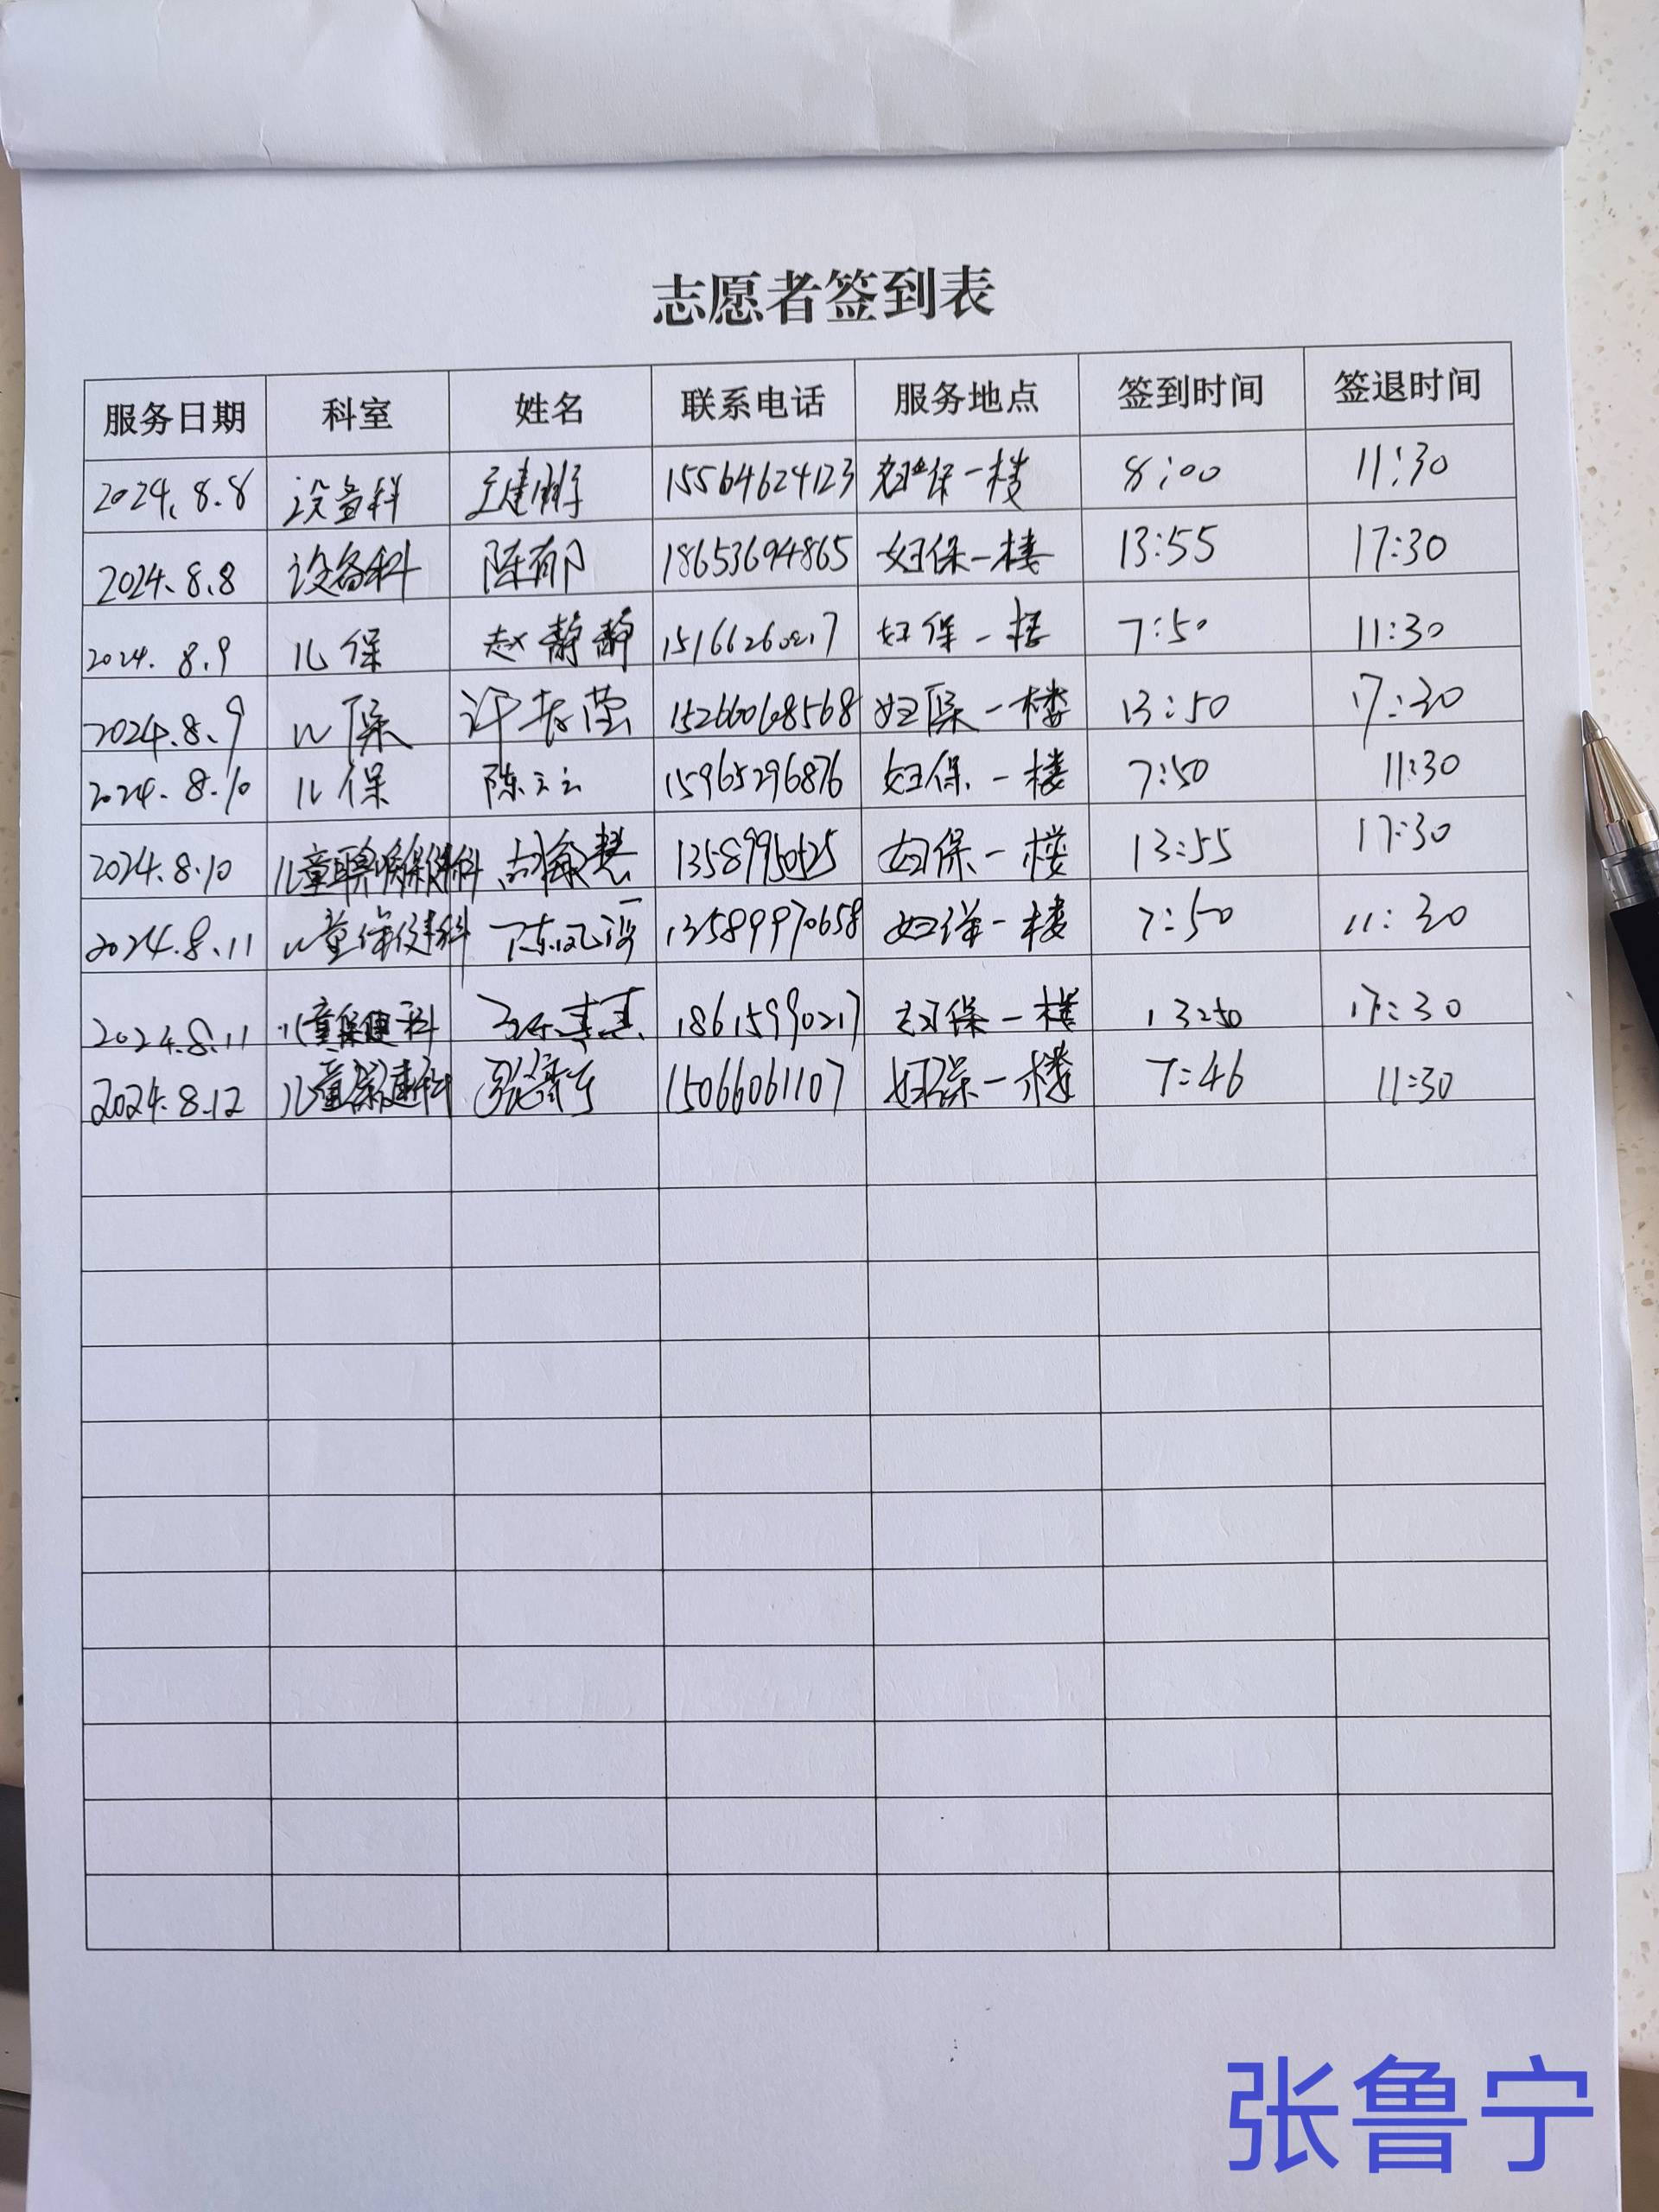 志愿者签到表
服务日期 科室 姓名 联系电话 服务地点 签到时间 签退时间
2024.8.8 设备科 15564624123 妇保一楼 8:00 11:30
2024.8.8 设备科 陈郁 18653694865 妇保一楼 13:55 17:30
2024.8.9 儿保 赵静静 15166260217 妇保一楼 7:50 11:30
2024.8.9 儿保 许春莹 15266068568 妇保一楼 13:50 17:30
2024.8.10 儿保 陈云云 15965296876 妇保一楼 7:50 11:30
2024.8.10 妇保一楼 13:55 17:30
2024.8.11 儿童保健科 13589970658 妇保一楼 7:50 11:30
2024.8.11 儿童保健科 18615990217 妇保一楼 13:50 17:30
2024.8.12 儿童保健科 张鲁宁 15066061107 妇保一楼 7:46 11:30
张鲁宁